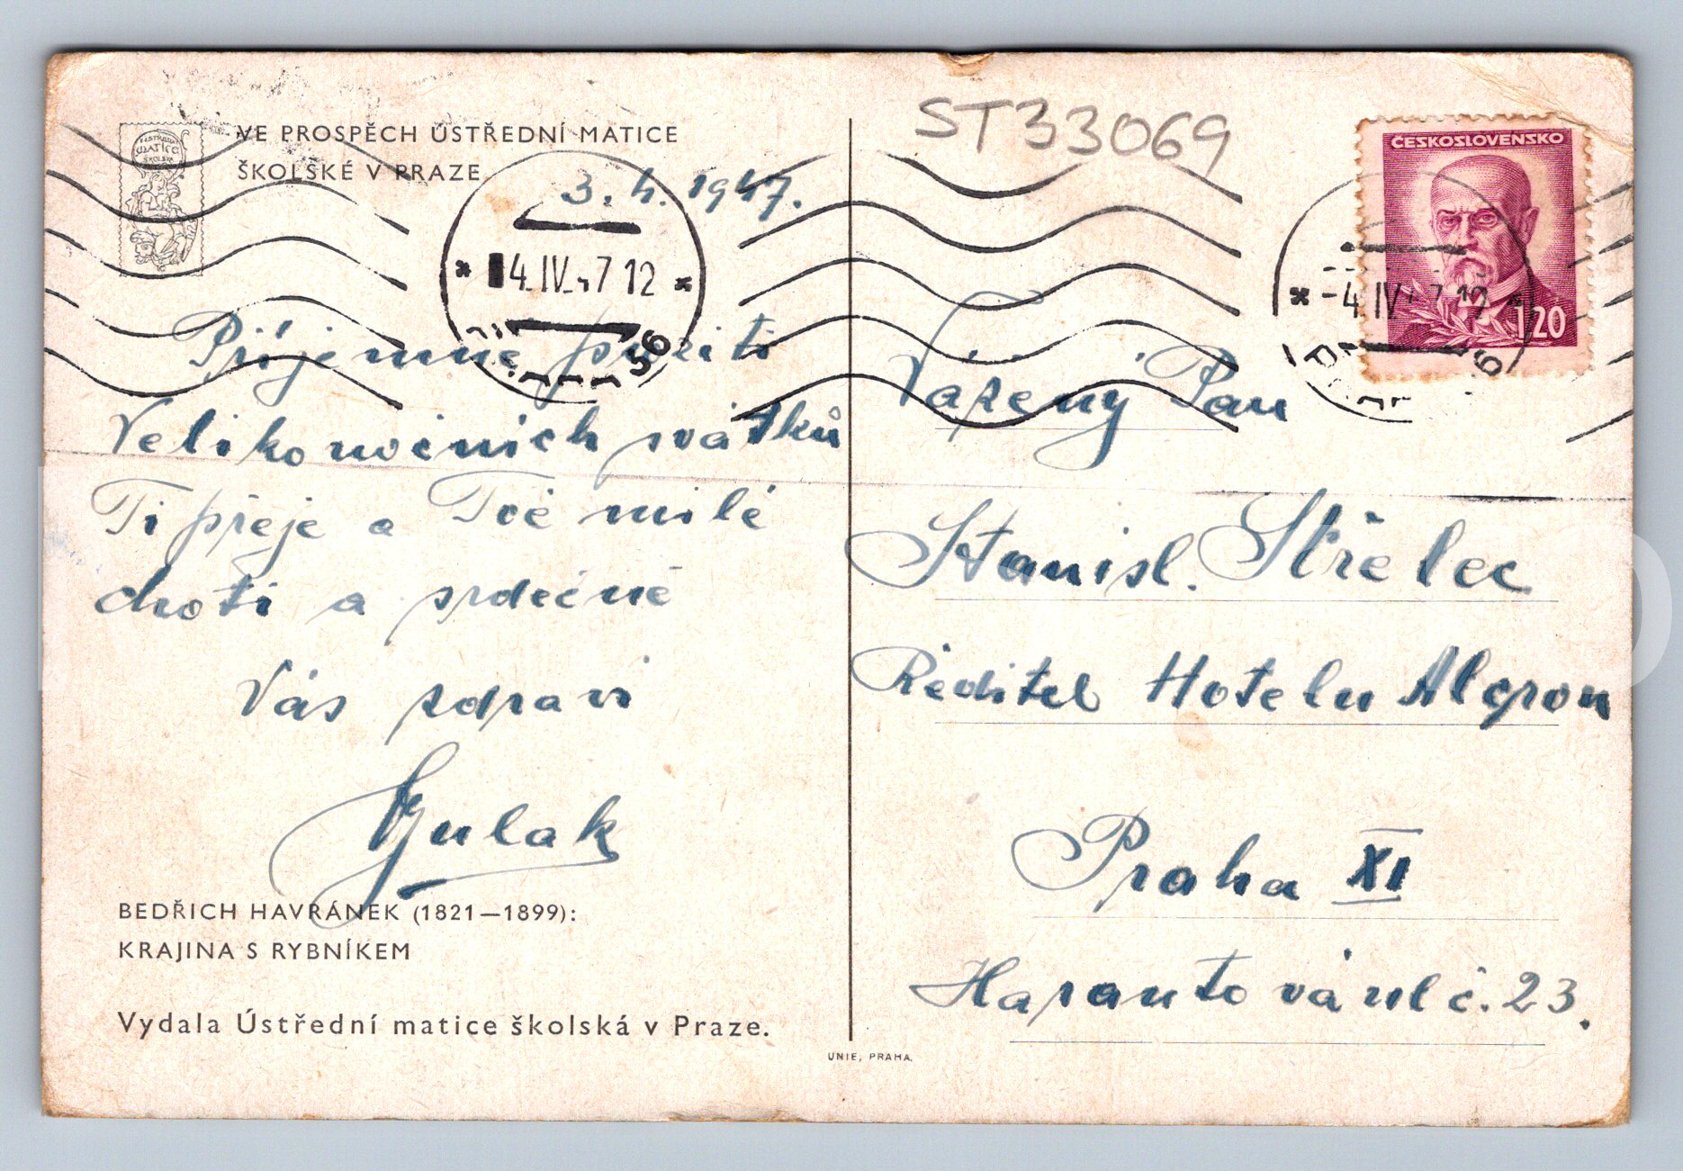 VE PROSPĚCH ÚSTŘEDNÍ MATICE
ŠKOLSKÉ V PRAZE
MATICE
3. 4. 1947.
4. IV. 47 12
56
Příjemné prožití
Velikonočních svátků
Ti přeje a Tvé milé
choti a srdečně
Vás zdraví
BEDŘICH HAVRÁNEK (1821—1899):
KRAJINA S RYBNÍKEM
Vydala Ústřední matice školská v Praze.
UNIE, PRAHA.
ST33069
ČESKOSLOVENSKO
1.20
-4. IV. 47 12
Vážený Pan
Stanisl. Střelec
Ředitel Hotelu Alcron
Praha XI
ul č. 23.